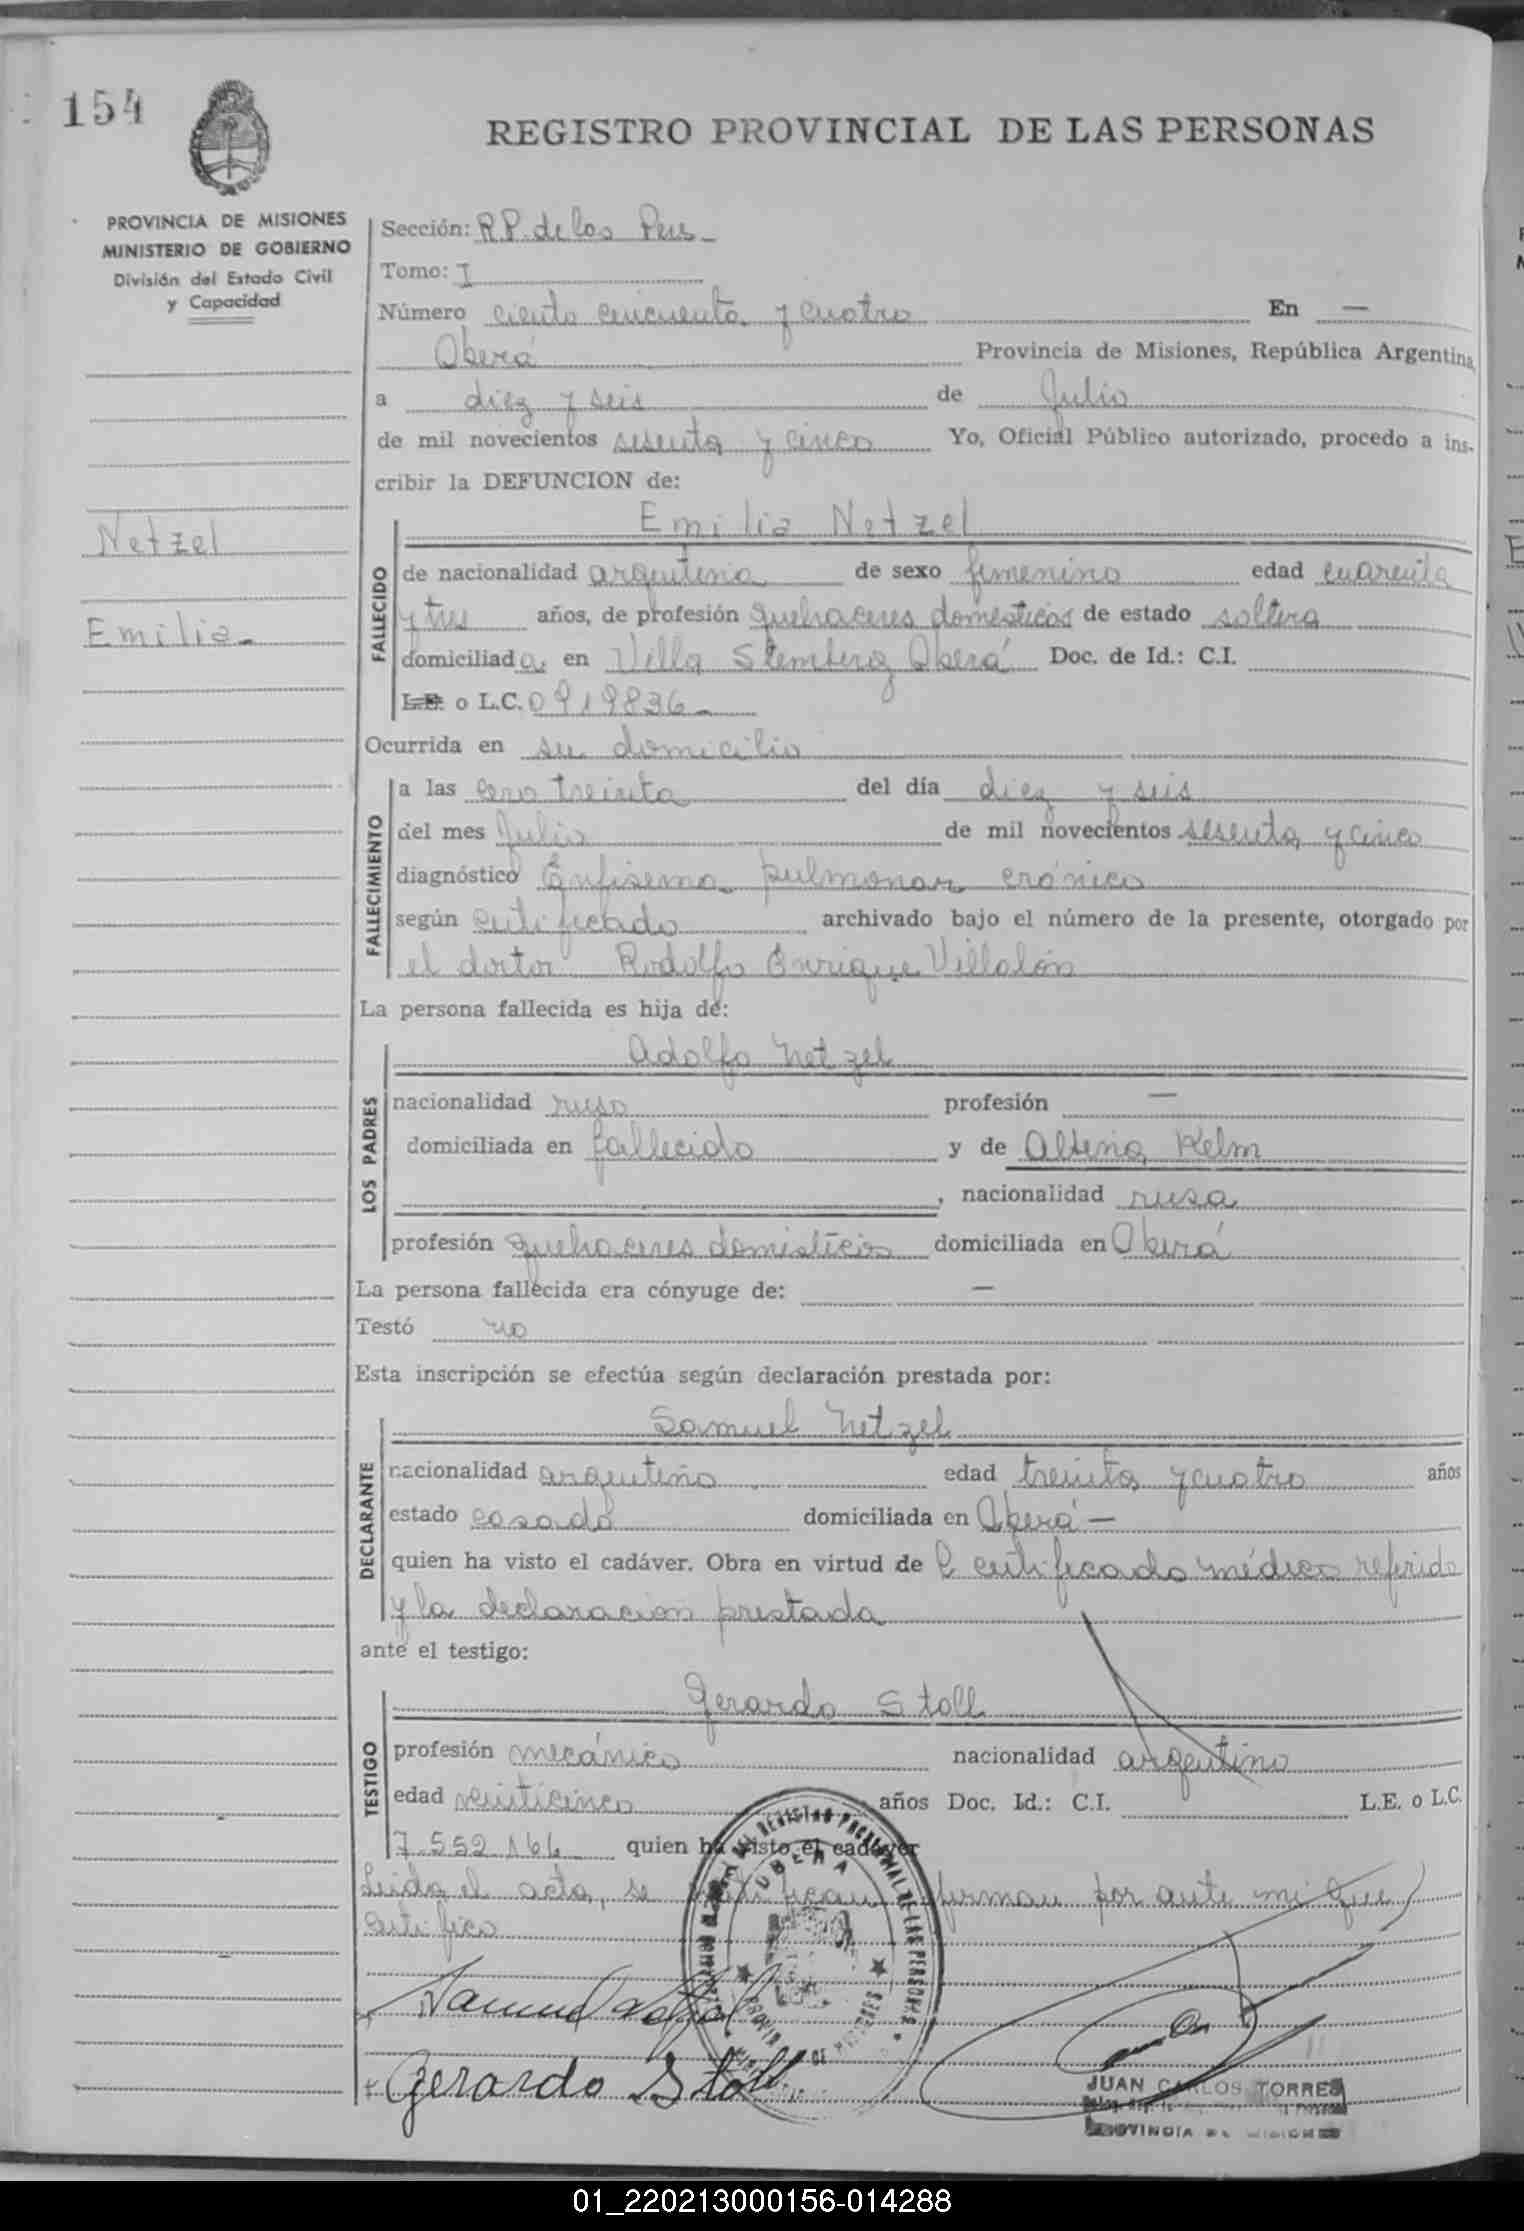 154
REGISTRO PROVINCIAL DE LAS PERSONAS
PROVINCIA DE MISIONES
MINISTERIO DE GOBIERNO
División del Estado Civil
y Capacidad
Netzel
Emilia-
Sección: R.P. de las Pers-
Tomo: I
Número ciento cincuenta y cuatro En —
Oberá Provincia de Misiones, República Argentina,
a diez y seis de Julio
de mil novecientos sesenta y cinco Yo, Oficial Público autorizado, procedo a ins-
cribir la DEFUNCION de:
Emilia Netzel
FALLECIDO
de nacionalidad argentina de sexo femenino edad cuarenta
y tres años, de profesión quehaceres domésticos de estado soltera
domiciliada en Villa Stemberg Oberá Doc. de Id.: C.I.
L.E. o L.C. 0919836-
Ocurrida en su domicilio
FALLECIMIENTO
a las cero treinta del día diez y seis
del mes Julio de mil novecientos sesenta y cinco
diagnóstico Enfisema pulmonar crónico
según certificado archivado bajo el número de la presente, otorgado por
el doctor Rodolfo Enrique Villalón
La persona fallecida es hija de:
Adolfo Netzel
LOS PADRES
nacionalidad ruso profesión —
domiciliada en fallecido y de Altina Kelm
, nacionalidad rusa
profesión quehaceres domésticos domiciliada en Oberá
La persona fallecida era cónyuge de: —
Testó no
Esta inscripción se efectúa según declaración prestada por:
Samuel Netzel
DECLARANTE
nacionalidad argentino edad treinta y cuatro años
estado casado domiciliada en Oberá —
quien ha visto el cadáver. Obra en virtud de l certificado médico referido
y la declaración prestada
ante el testigo:
Gerardo Stoll
TESTIGO
profesión mecánico nacionalidad argentino
edad veinticinco años Doc. Id.: C.I. L.E. o L.C.
7.552.166 quien ha visto el cadáver
Leída el acta, se ratifican firman por ante mi que
certifico
OBERA
Samuel Netzel
Gerardo Stoll
JUAN CARLOS TORRES
PROVINCIA DE MISIONES
01_220213000156-014288